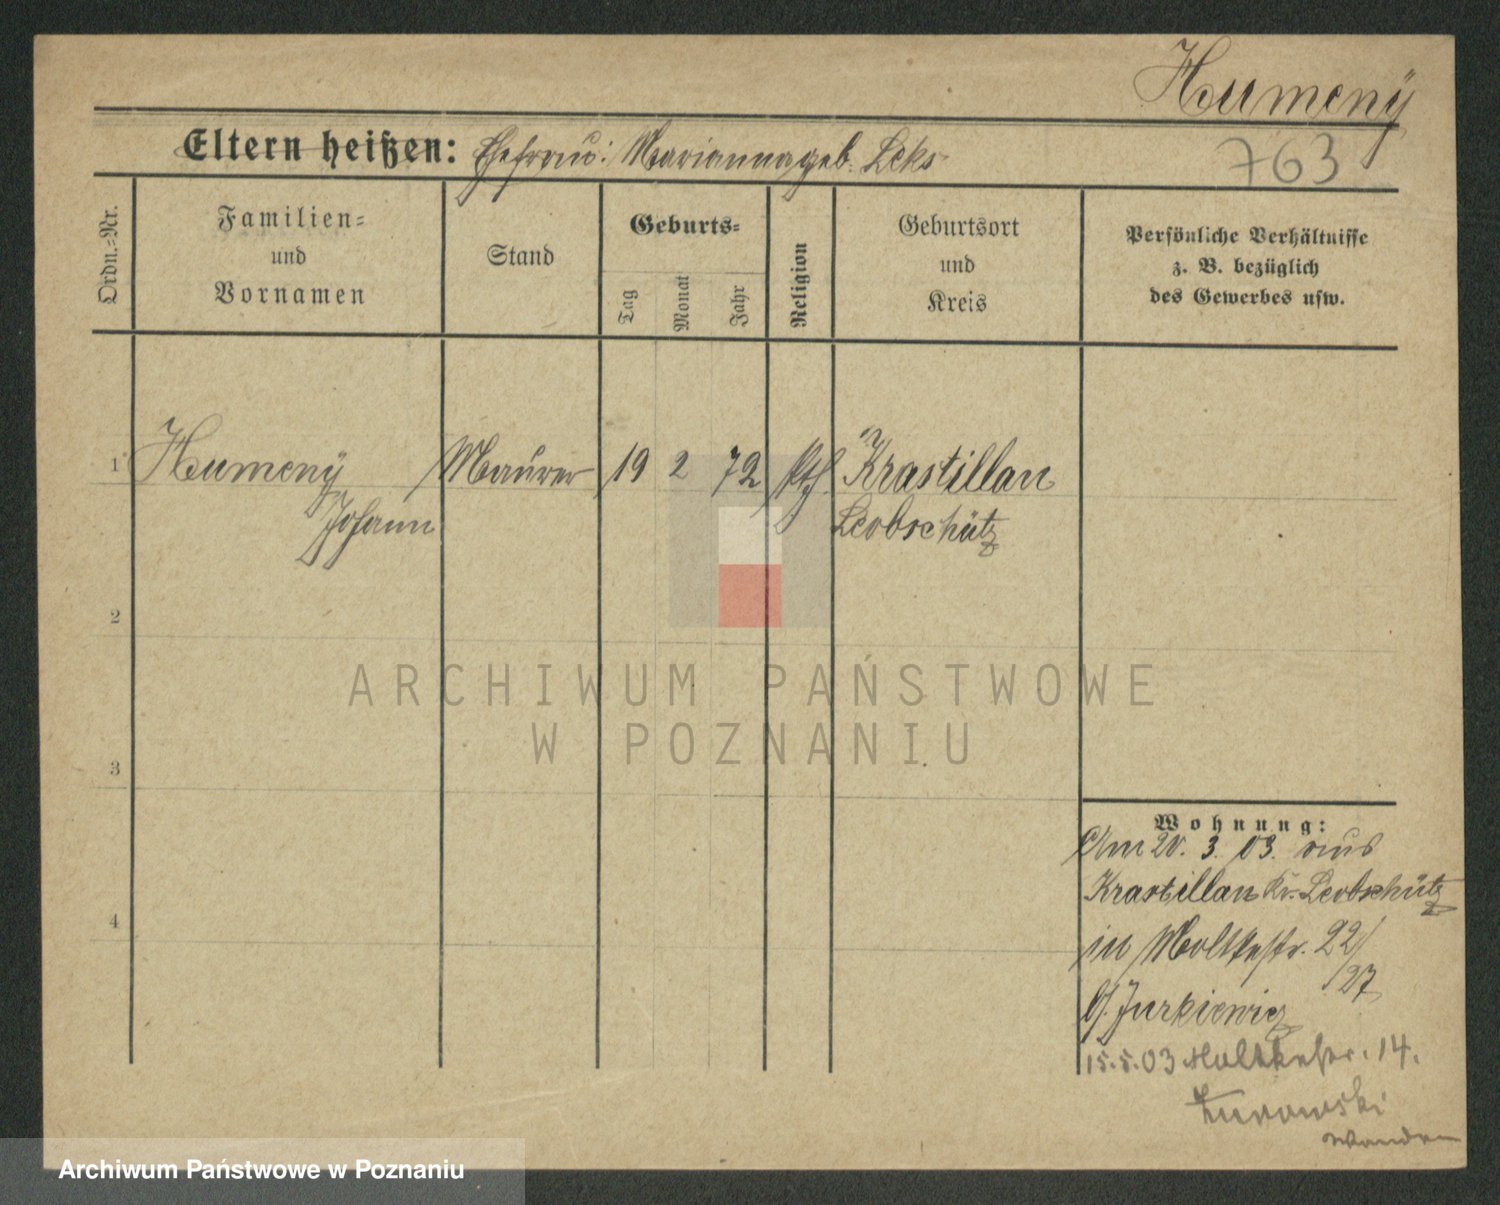 Humenÿ
763
Eltern heißen: Ehefrau: Marianna geb. Leks
Ordn.-Nr.
Familien-
und
Vornamen
Stand
Geburts-
Tag
Monat
Jahr
Religion
Geburtsort
und
Kreis
Persönliche Verhältnisse
z. B. bezüglich
des Gewerbes usw.
1 Humenÿ Maurer 19 2 72 kth. Krastillan
Johann Leobschütz
2
3
4
Wohnung:
Am 20. 3. 03. aus
Krastillan Kr. Leobschütz
in Moltkestr. 22/
27
b/ Jurkiewicz
15.5.03 Moltkestr. 14.
Zurowski
ARCHIWUM PAŃSTWOWE
W POZNANIU
Archiwum Państwowe w Poznaniu